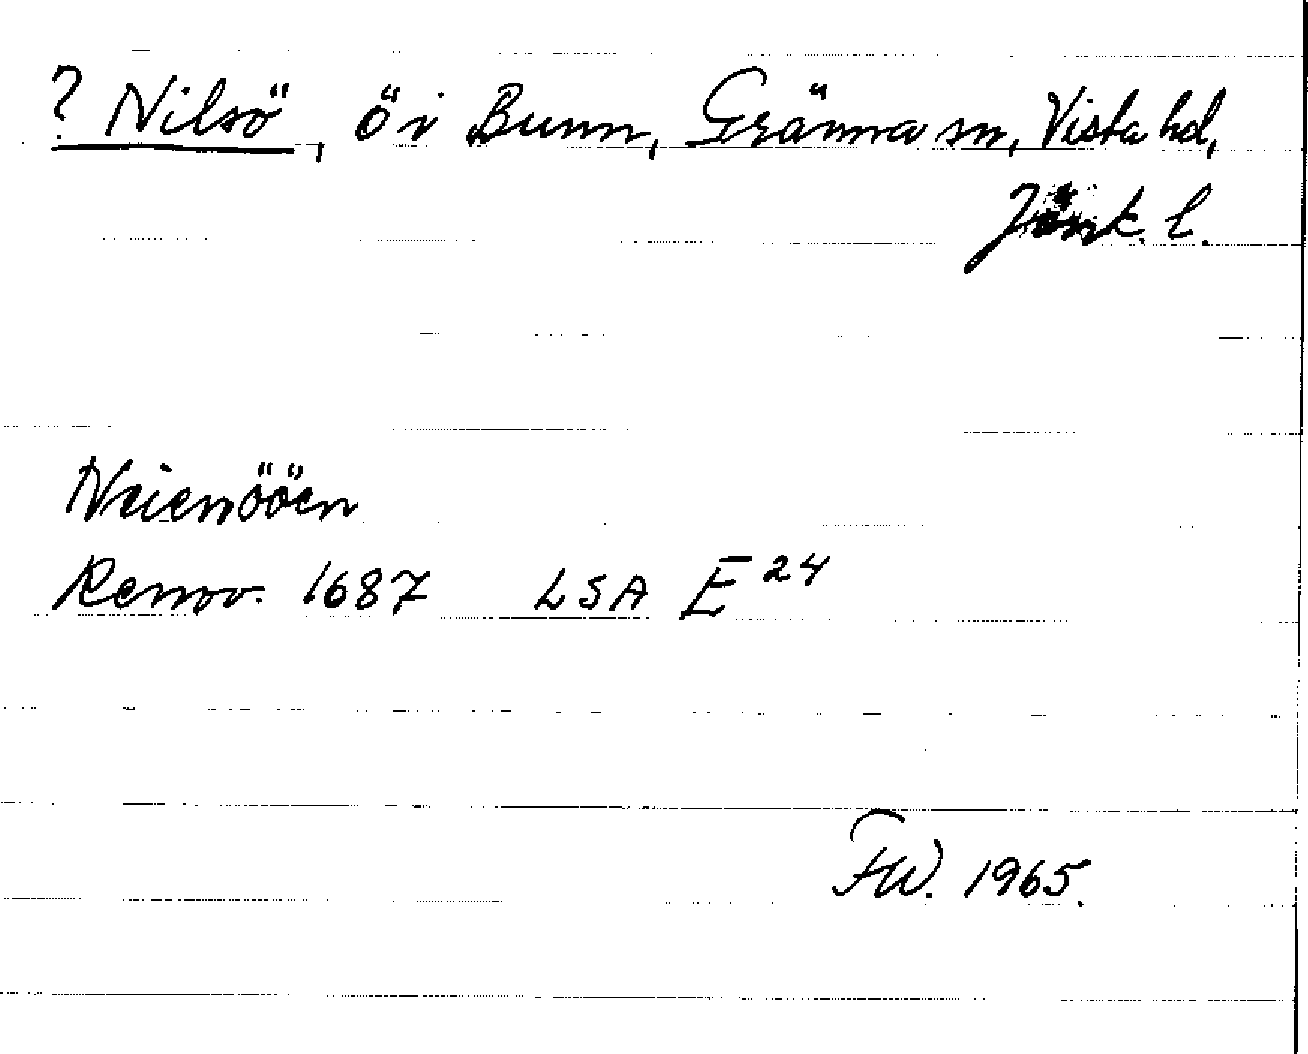 ? Nilsö, ö i Bunn, Gränna sn, Vista hd,
Jönk. l.
Neienööen
Renov. 1687 LSA E 24
FW. 1965.